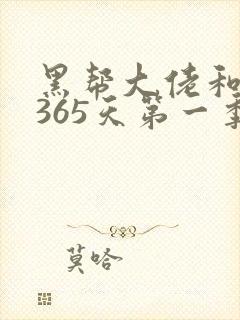 黑帮大佬和
365天第一季
莫哈